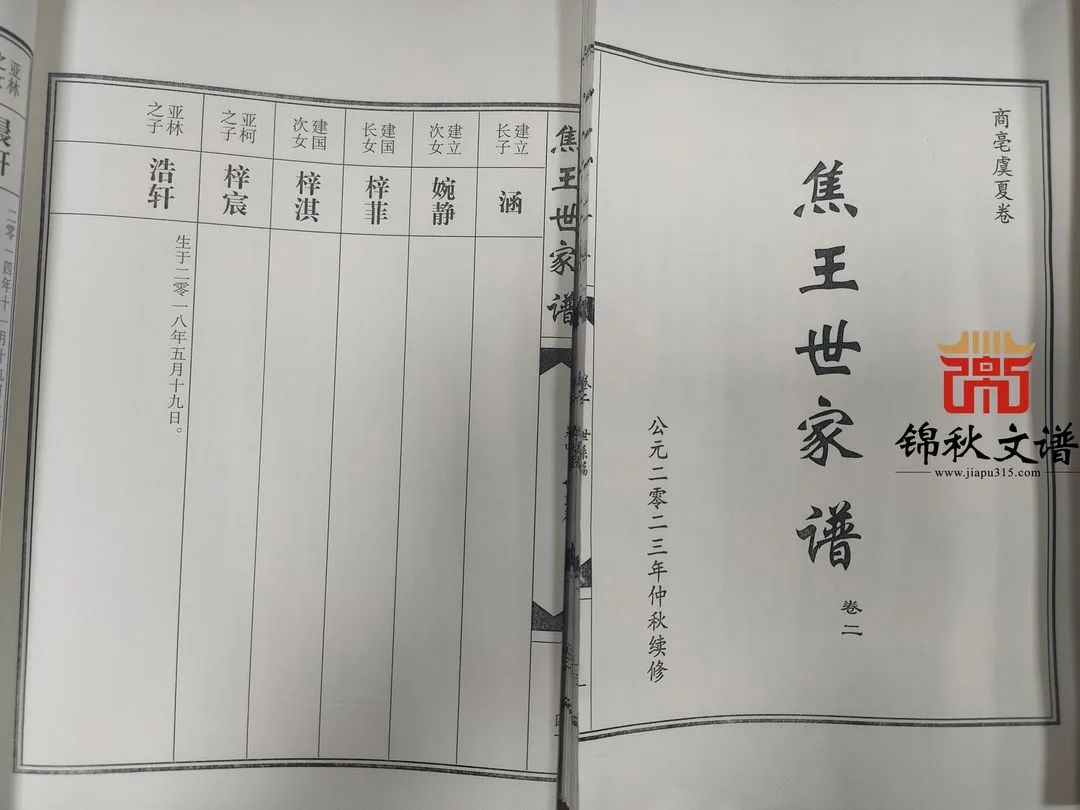 商亳虞夏卷
焦王世家谱
卷二
公元二零二三年仲秋续修
锦秋文谱
www.jiapu315.com
焦王世家谱
建立
长子
涵
建立
次女
婉静
建国
长女
梓菲
建国
次女
梓淇
亚柯
之子
梓宸
亚林
之子
浩轩
生于二零一八年五月十九日。
亚林
之女
晨轩